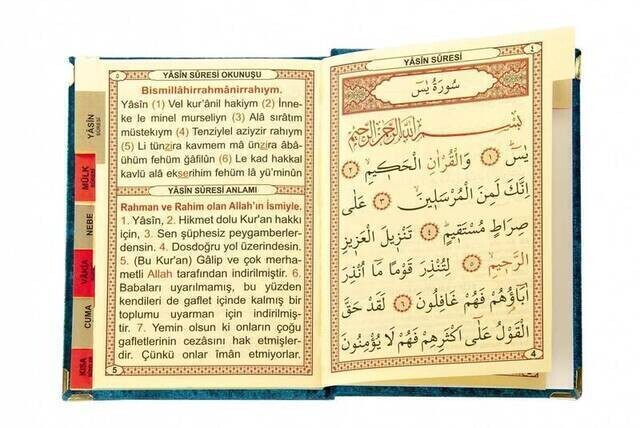 YÂSİN SÛRESİ OKUNUŞU
Bismillâhirrahmânirrahıym.
Yâsîn (1) Vel kur'ânil hakiym (2) İnne-
ke le minel murseliyn (3) Alâ sırâtım
müstekıym (4) Tenziylel aziyzir rahıym
(5) Li tünzira kavmem mâ ünzira âbâ-
ühüm fehüm ğâfilûn (6) Le kad hakkal
kavlü alâ ekserihim fehüm lâ yü'minûn
YÂSİN SÛRESİ ANLAMI
Rahman ve Rahim olan Allah'ın İsmiyle.
1. Yâsîn, 2. Hikmet dolu Kur'an hakkı
için, 3. Sen şüphesiz peygamberler-
densin. 4. Dosdoğru yol üzerindesin.
5. (Bu Kur'an) Gâlip ve çok merha-
metli Allah tarafından indirilmiştir. 6.
Babaları uyarılmamış, bu yüzden
kendileri de gaflet içinde kalmış bir
toplumu uyarman için indirilmiş-
tir. 7. Yemin olsun ki onların çoğu
gafletlerinin cezasını hak etmişler-
dir. Çünkü onlar îmân etmiyorlar.
5
YÂSİN SÛRESİ
MÜLK
NEBE
VÂKIA
CUMA
KISA
YÂSİN SÛRESİ
٤
سُورَةُ يٰسٓ
بِسْمِ اللهِ الرَّحْمٰنِ الرَّحِيمِ
يٰسٓ ﴿١﴾ وَالْقُرْاٰنِ الْحَكِيمِ ﴿٢﴾
اِنَّكَ لَمِنَ الْمُرْسَلِينَ ﴿٣﴾ عَلٰى
صِرَاطٍ مُسْتَقِيمٍ ﴿٤﴾ تَنْزِيلَ الْعَزِيزِ
الرَّحِيمِ ﴿٥﴾ لِتُنْذِرَ قَوْمًا مَٓا اُنْذِرَ
اٰبَٓاؤُهُمْ فَهُمْ غَافِلُونَ ﴿٦﴾ لَقَدْ حَقَّ
الْقَوْلُ عَلٰٓى اَكْثَرِهِمْ فَهُمْ لَا يُؤْمِنُونَ
4